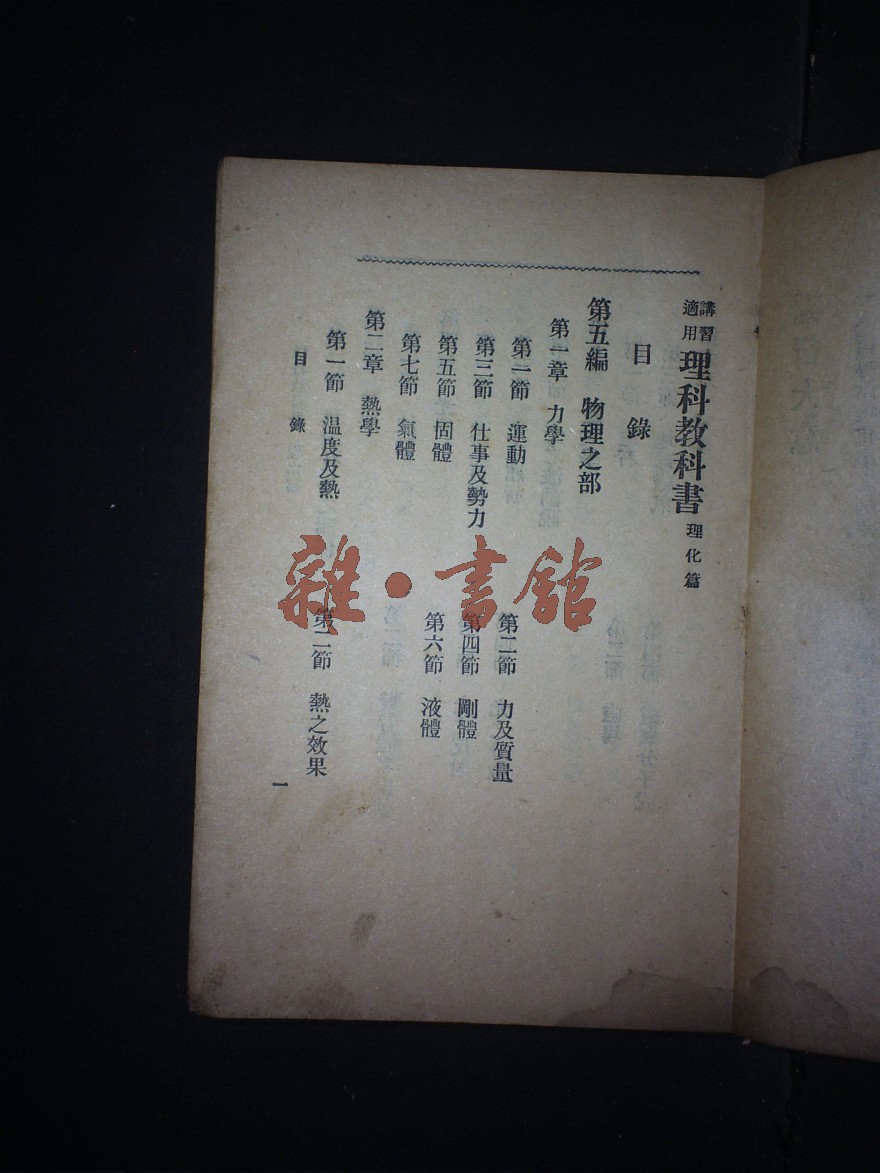 講習適用 理科教科書 理化篇
目錄
第五編 物理之部
第一章 力學
第一節 運動 第二節 力及質量
第三節 仕事及勢力 第四節 剛體
第五節 固體 第六節 液體
第七節 氣體
第二章 熱學
第一節 温度及熱 第二節 熱之效果
目錄 一
雜·書館